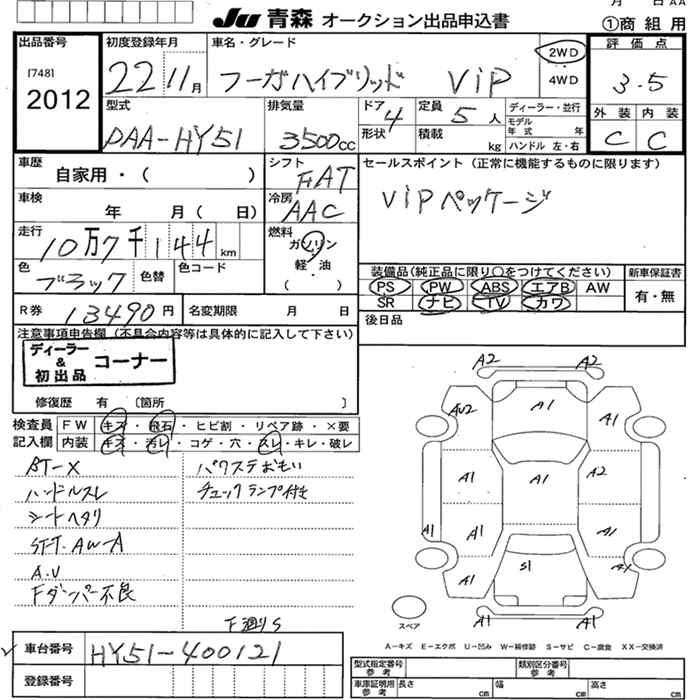 月 日 AA
Ju 青森 オークション出品申込書
①商 組 用
出品番号
[748]
2012
初度登録年月
22 11月
車名・グレード
フーガハイブリッド VIP
2WD
4WD
評価点
3.5
外装 内装
C C
型式
DAA-HY51
排気量
3500cc
ドア 4
形状
定員 5 人
積載 kg
ディーラー・並行
モデル年式 年
ハンドル 左・右
車歴
自家用・( )
シフト
FAT
セールスポイント(正常に機能するものに限ります)
VIPパッケージ
車検
年 月( 日)
冷房
AAC
走行
10万7千144km
燃料
ガソリン
軽・油
( )
色
ブラック
色替
色コード
装備品(純正品に限り○をつけてください)
PS PW ABS エアB AW
SR ナビ TV カワ
新車保証書
有・無
R券 13490円
名変期限 月 日
後日品
注意事項申告欄(不具合内容等は具体的に記入して下さい)
ディーラー & 初出品 コーナー
修復歴 有 〔箇所 〕
検査員 FW キズ・飛石・ヒビ割・リペア跡・×要
記入欄 内装 キズ・汚レ・コゲ・穴・スレ・キレ・破レ
BT-X
ハンドルスレ
シートヘタリ
SFT.AW-A
A.U
Fダンパー不良
パワステおもい
チェックランプ付き
F廻りS
A2 A2
AU2 A1 A1
A1 A1 A2
A1 A1 A1
A1 S1
A1 A1
スペア
A-キズ E-エクボ U-凹み W-補修跡 S-サビ C-腐食 XX-交換済
車台番号 HY51-400121
登録番号
型式指定番号 参考
類別区分番号 参考
車庫証明用 参考 長さ cm 幅 cm 高さ cm